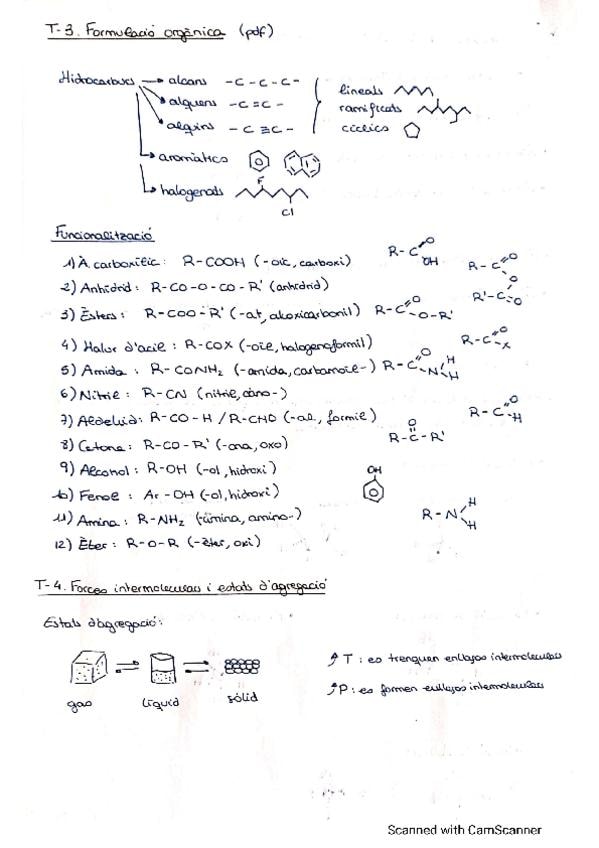 T-3. Formulació orgànica (pdf)
Hidrocarburs → alcans -C-C-C- lineals
→ alquens -C=C- ramificats
→ alquins -C≡C- cíclics
→ aromàtics
→ halogenats F
Cl
Funcionalització
1) À carboxílic: R-COOH (-oic, carboxi) R-C O OH
2) Anhídrid: R-CO-O-CO-R' (anhídrid) R-C O O R'-C O
3) Èsters: R-COO-R' (-at, alcoxicarbonil) R-C O O-R'
4) Halur d'àcil: R-COX (-oil, halogenoformil) R-C O X
5) Amida: R-CONH₂ (-amida, carbamoil-) R-C O N H H
6) Nitril: R-CN (nitril, ciano-)
7) Aldehid: R-CO-H / R-CHO (-al, formil) R-C O H
8) Cetona: R-CO-R' (-ona, oxo) R-C-R' O
9) Alcohol: R-OH (-ol, hidroxi)
10) Fenol: Ar-OH (-ol, hidroxi) OH
11) Amina: R-NH₂ (-amina, amino-) R-N H H
12) Èter: R-O-R (-èter, oxi)
T-4. Forces intermoleculars i estats d'agregació
Estats d'agregació:
gas líquid sòlid
↑T: es trenquen enllaços intermoleculars
↑P: es formen enllaços intermoleculars
Scanned with CamScanner